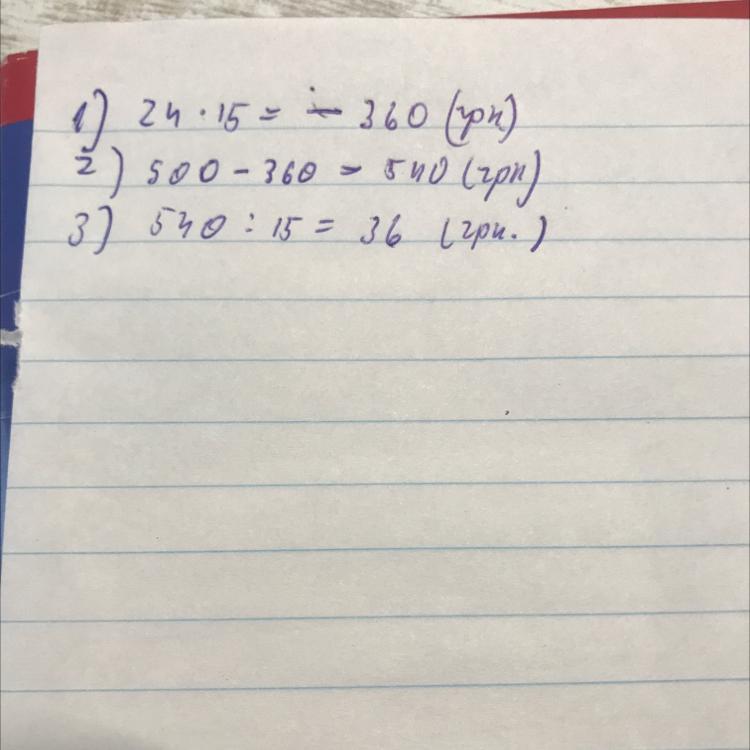 1) 24 · 15 = - 360 (грн)
2) 500 - 360 = 540 (грн)
3) 540 : 15 = 36 (грн.)